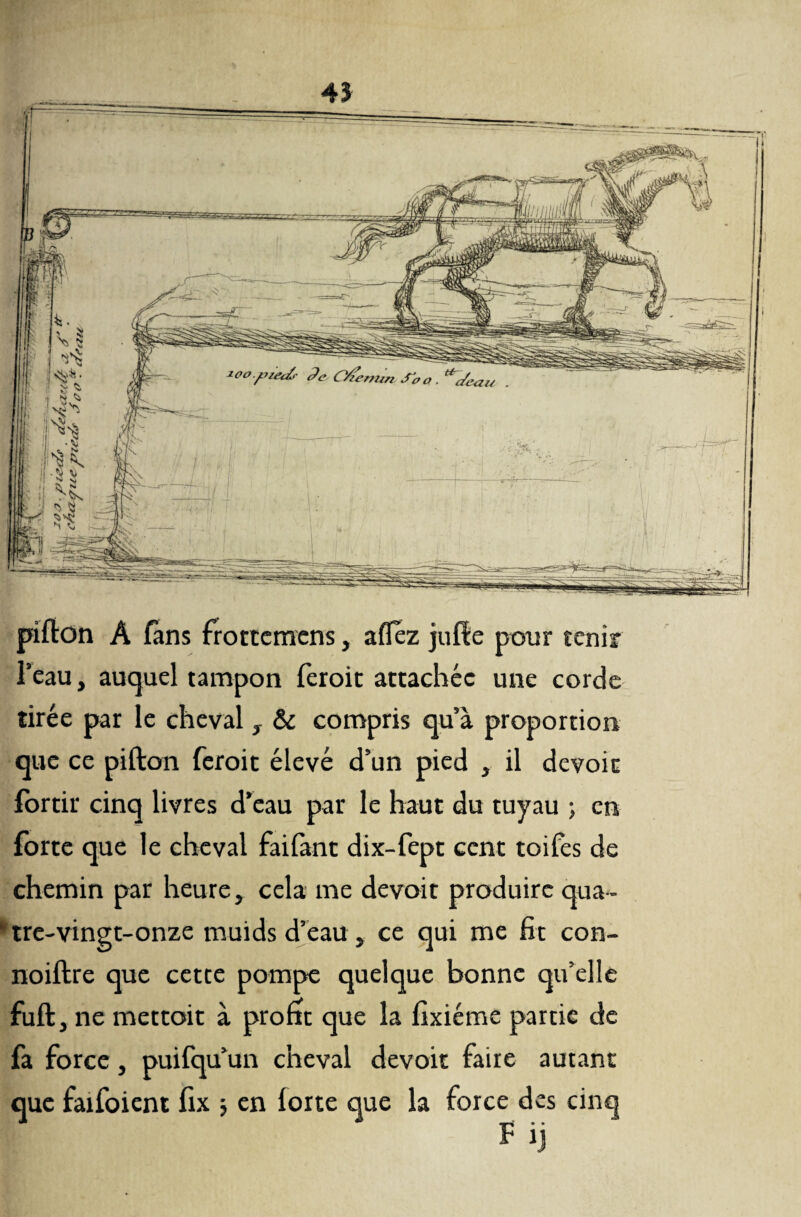 43
B
100. pieds de haut à 5 tt
chaque pieds 500 tt d'eau
100. pieds de Chemin 500. tt d'eau.
piſton A ſans frottemens, aſſez juſte pour tenir
l'eau, auquel tampon ſeroit attachée une corde
tirée par le cheval, & compris qu'à proportion
que ce piſton ſeroit élevé d'un pied, il devoit
ſortir cinq livres d'eau par le haut du tuyau ; en
ſorte que le cheval faiſant dix-ſept cent toiſes de
chemin par heure, cela me devoit produire qua-
tre-vingt-onze muids d'eau, ce qui me fit con-
noiſtre que cette pompe quelque bonne qu'elle
fuſt, ne mettoit à profit que la ſixiéme partie de
ſa force, puiſqu'un cheval devoit faire autant
que faiſoient ſix ; en ſorte que la force des cinq
F ij